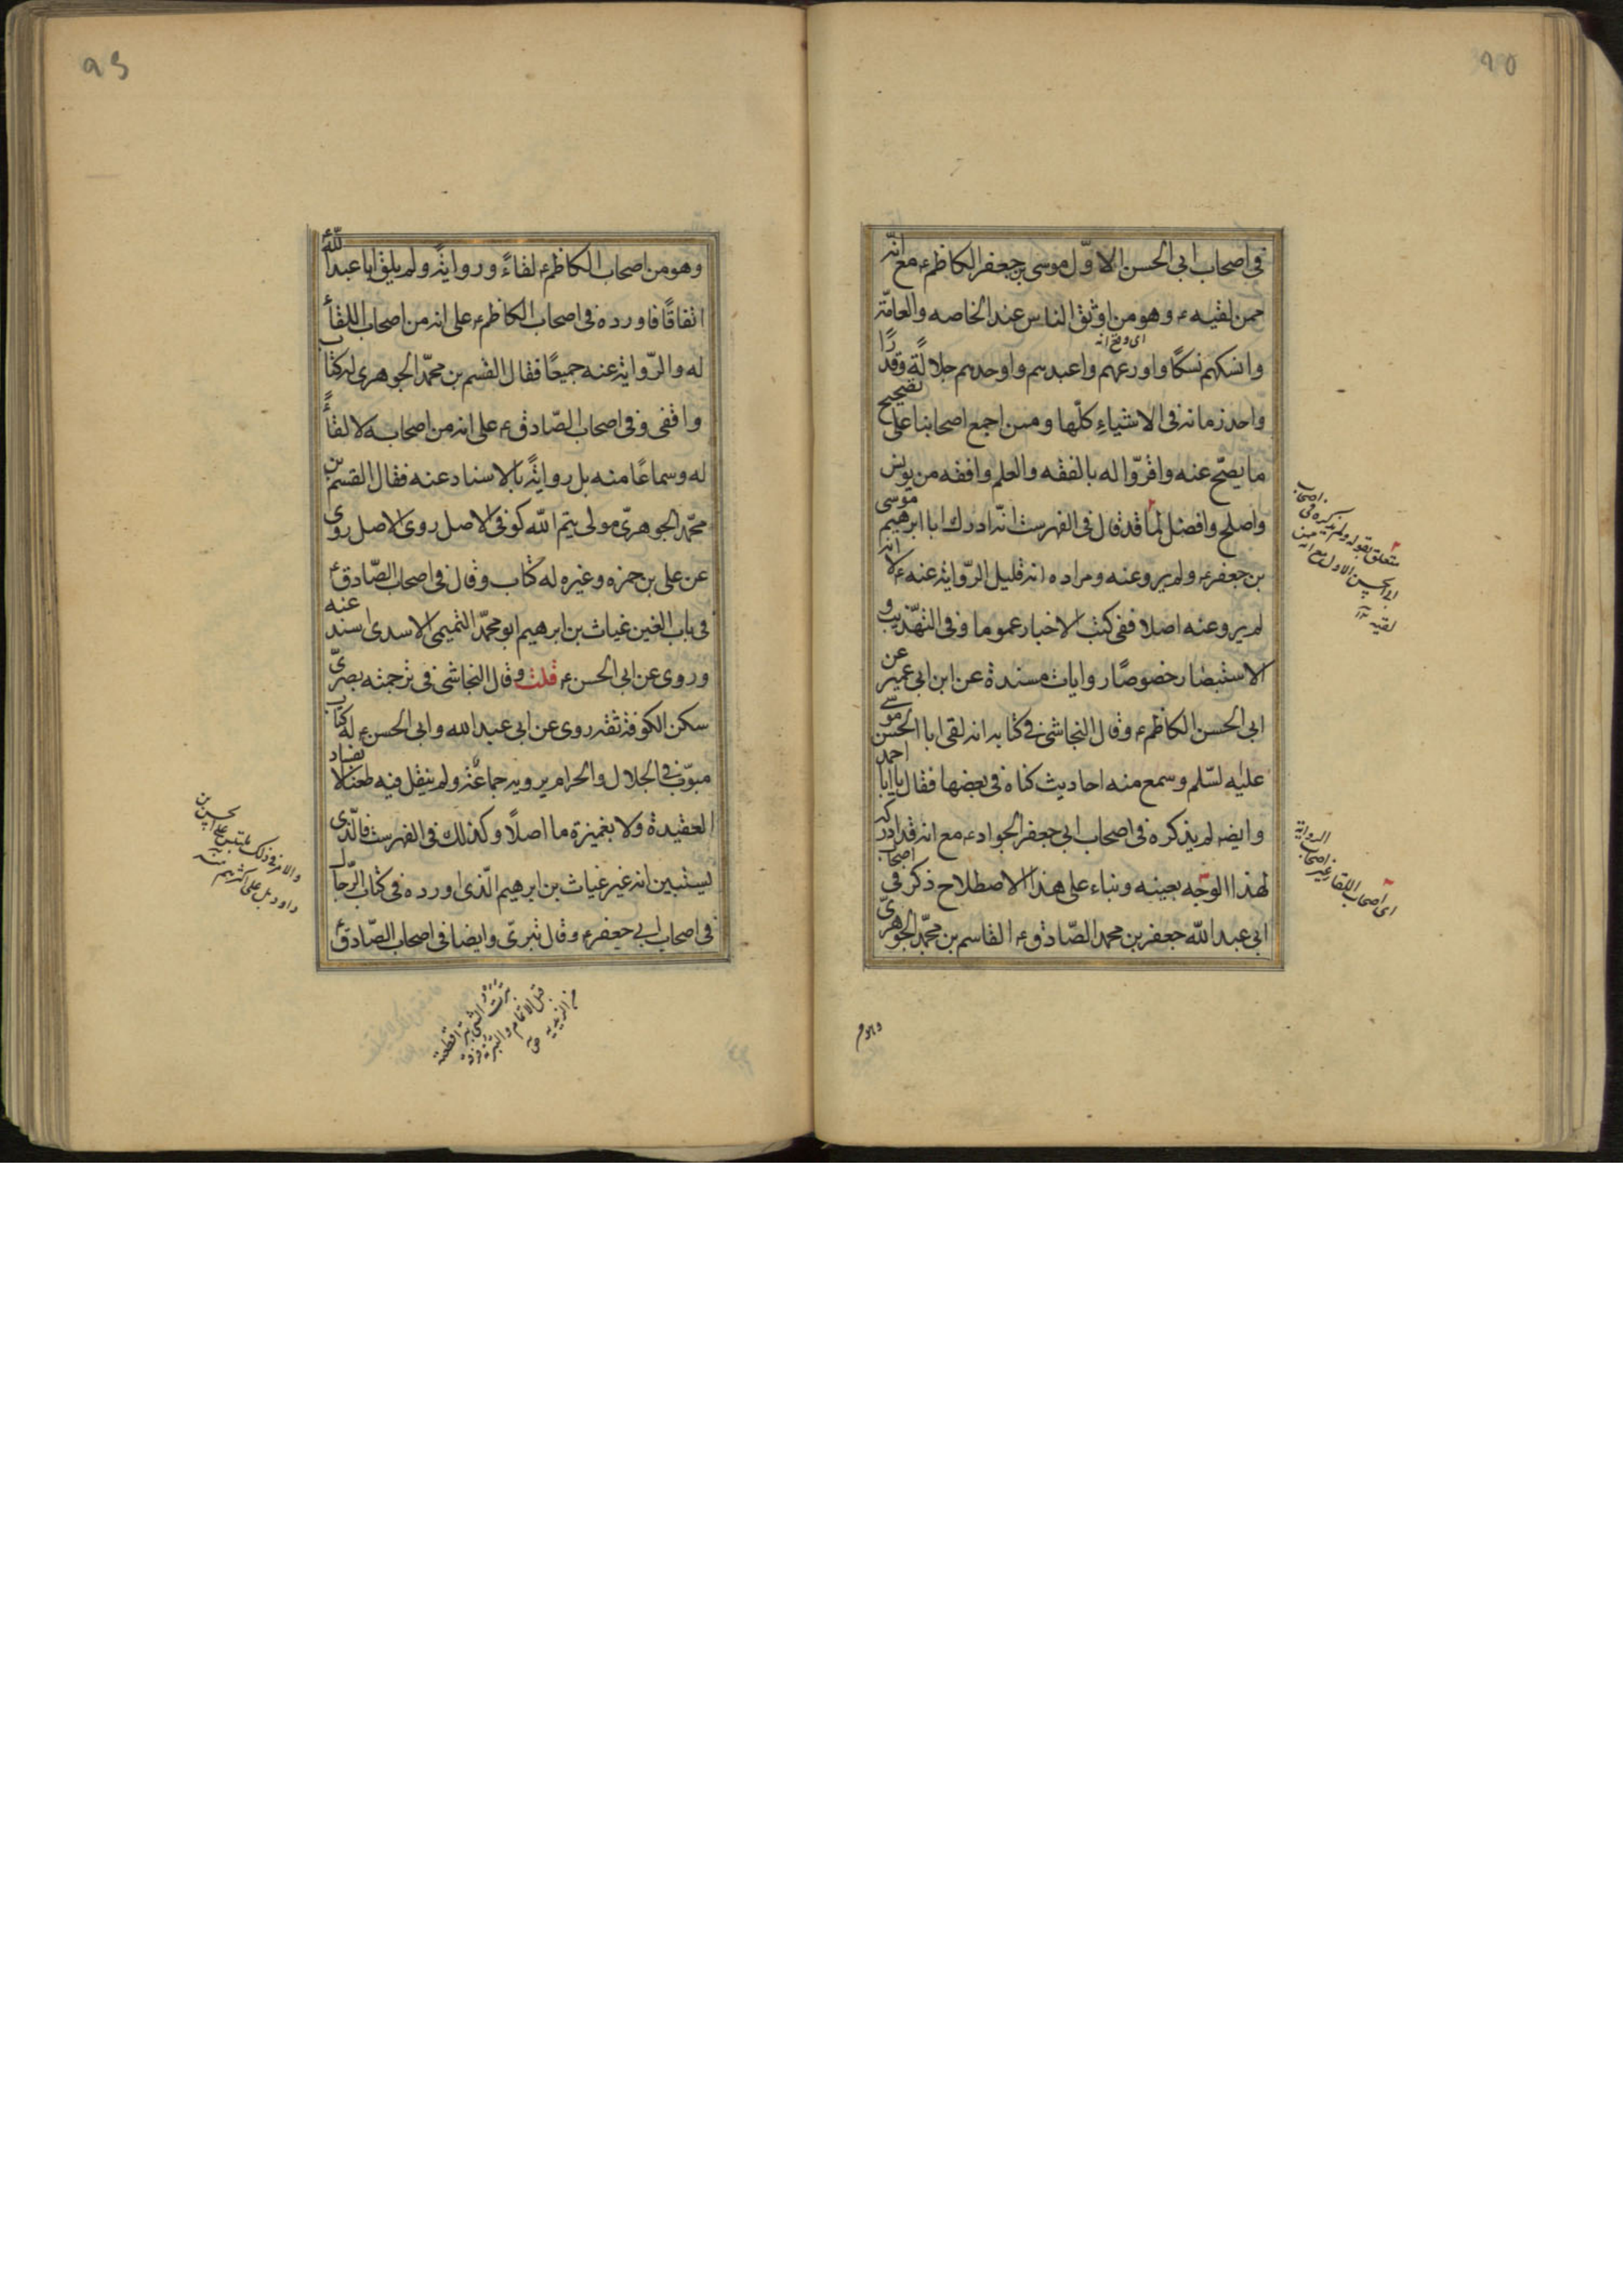 ٩٥
في اصحاب ابي الحسن الاوّل موسى بن جعفر الكاظم ع مع انّه
ممن لقيه ع وهو من اوثق الناس عند الخاصه والعامّة
وانسكهم نسكًا واورعهم واعبدهم واوحدهم جلالةً وقدرًا
اى وضح انه
واحد زمانه في الاشياءِ كلّها وممن اجمع اصحابنا على تصحيح
ما يصحّ عنه واقرّوا له بالفقه والعلم وافقه من يونس
واصلح وافضل لما قد قال في الفهرست انّه ادرك ابا ابرهيم موسى
بن جعفر ع ولم يرو عنه ومراده انه قليل الرّواية عنه ع لا انه
لم يرو عنه اصلا ففي كتب الاخبار عموما وفي التهذيب و
الاستبصار خصوصًا روايات مسندة عن ابن ابي عمير عن
ابي الحسن الكاظم ع وقال النجاشي في كتابه انه لقى ابا الحسن موسى
عليه لسّلم وسمع منه احاديث كناه في بعضها فقال يا ابا احمد
وايضه لم يذكره في اصحاب ابي جعفر الجواد ع مع انه قد ادركه
لهذا الوجه بعينه وبناء على هذا الاصطلاح ذكر في اصحاب
ابي عبد الله جعفر بن محمد الصّادق ع القاسم بن محمّد الجوهرىّ
متعلق بقوله ولم يذكره في اصحاب
ابي الحسن الاول مع انه ممن
لقيه
اى اصحاب اللقا غير اصحاب
الرواية
وهو من
٩٦
وهو من اصحاب الكاظم ع لقاءً وروايةً ولم يلق ابا عبد الله ع
اتفاقًا فاورده في اصحاب الكاظم ع على انه من اصحاب اللقأ
له والرّواية عنه جميعًا فقال القسم بن محمّد الجوهرى له كتاب
واقفى وفي اصحاب الصّادق ع على انه من اصحابه لا لقأً
له وسماعًا منه بل روايةً بالاسناد عنه فقال القسم بن
محمّد الجوهرىّ مولى تيم الله كوفى الاصل روى الاصل روى
عن على بن حمزه وغيره له كتاب وقال في اصحاب الصّادق ع
في باب الغين غياث بن ابرهيم ابو محمّد التميمى الاسدى اسند عنه
وروى عن ابي الحسن ع قلت وقال النجاشي في ترجمته بصرىّ
سكن الكوفة ثقة روى عن ابي عبد الله وابي الحسن ع له كتاب
مبوّب في الحلال والحرام يرويه جماعة ولم ينقل فيه طعنا لا بفساد
العقيدة ولا بغميزة ما اصلًا وكذلك في الفهرست فالّذى
يستبين انه غير غياث بن ابرهيم الّذى اورده في كتاب الرّجال
في اصحاب ابي جعفر ع وقال تبرىّ وايضا في اصحاب الصّادق ع
والامر في ذلك
داود بل على اكثرهم منه
بترت الشئ بترا قطعته
قبل الاتمام والبتريّة فرقة
من الزيدية